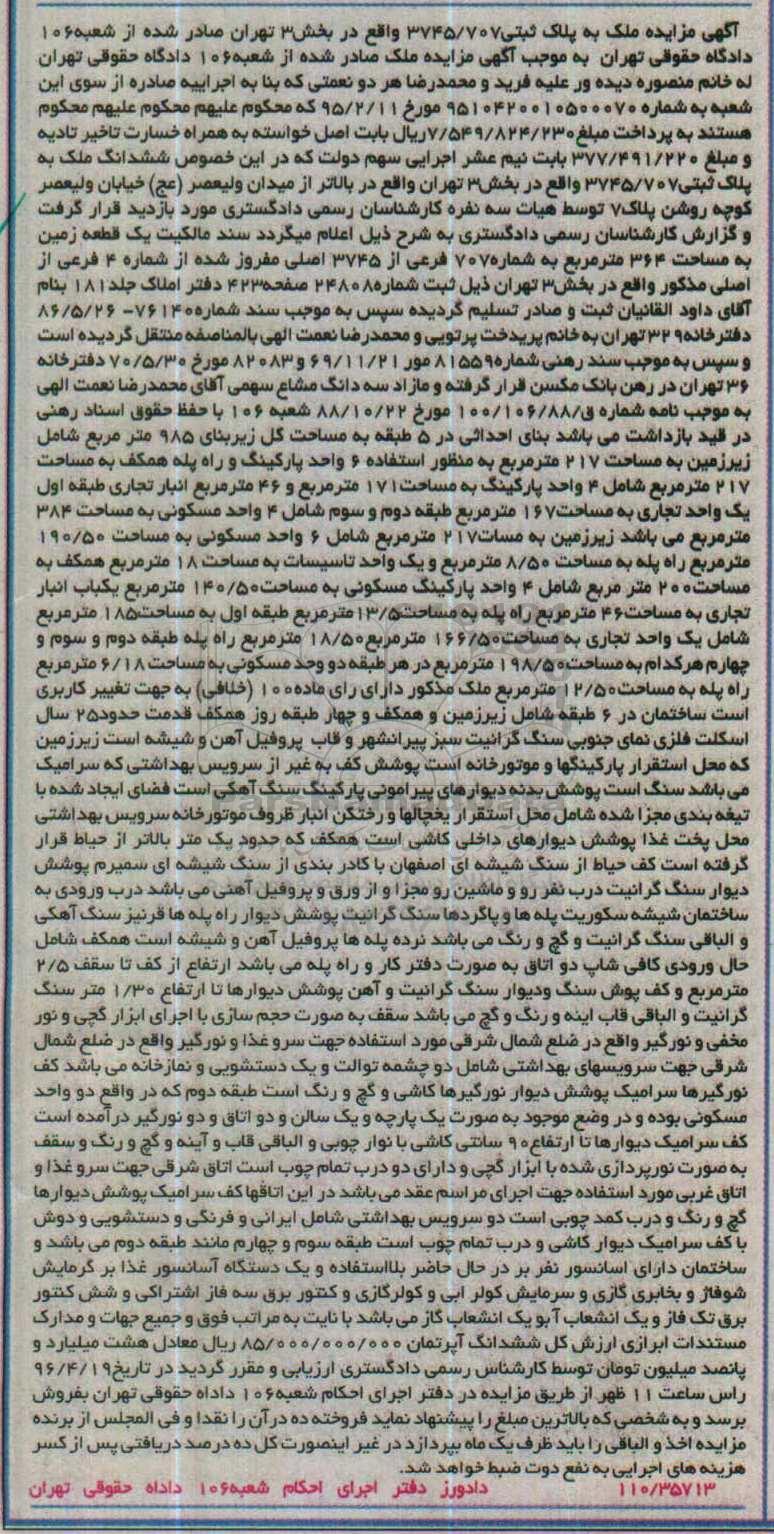 آگهی مزایده ملک به پلاک ثبتی۳۷۴۵/۷۰۷ واقع در بخش۳ تهران صادر شده از شعبه۱۰۶
دادگاه حقوقی تهران به موجب آگهی مزایده ملک صادر شده از شعبه۱۰۶ دادگاه حقوقی تهران
له خانم منصوره دیده ور علیه فرید و محمدرضا هر دو نعمتی که بنا به اجراییه صادره از سوی این
شعبه به شماره ۹۵۱۰۴۲۰۰۱۰۵۰۰۰۷۰ مورخ ۹۵/۲/۱۱ که محکوم علیهم محکوم علیهم محکوم
هستند به پرداخت مبلغ۷/۵۴۹/۸۲۴/۲۳۰ریال بابت اصل خواسته به همراه خسارت تاخیر تادیه
و مبلغ ۳۷۷/۴۹۱/۲۲۰ بابت نیم عشر اجرایی سهم دولت که در این خصوص ششدانگ ملک به
پلاک ثبتی۳۷۴۵/۷۰۷ واقع در بخش۳ تهران واقع در بالاتر از میدان ولیعصر (عج) خیابان ولیعصر
کوچه روشن پلاک۷ توسط هیات سه نفره کارشناسان رسمی دادگستری مورد بازدید قرار گرفت
و گزارش کارشناسان رسمی دادگستری به شرح ذیل اعلام میگردد سند مالکیت یک قطعه زمین
به مساحت ۳۶۴ مترمربع به شماره۷۰۷ فرعی از ۳۷۴۵ اصلی مفروز شده از شماره ۴ فرعی از
اصلی مذکور واقع در بخش۳ تهران ذیل ثبت شماره۲۴۸۰۸ صفحه۴۲۳ دفتر املاک جلد۱۸۱ بنام
آقای داود القانیان ثبت و صادر تسلیم گردیده سپس به موجب سند شماره۷۶۱۴۰- ۸۶/۵/۲۶
دفترخانه۳۲۹ تهران به خانم پریدخت پرتویی و محمدرضا نعمت الهی بالمناصفه منتقل گردیده است
و سپس به موجب سند رهنی شماره۸۱۵۵۹ مور ۶۹/۱۱/۲۱ و ۸۲۰۸۳ مورخ ۷۰/۵/۳۰ دفترخانه
۳۶ تهران در رهن بانک مکسن قرار گرفته و مازاد سه دانگ مشاع سهمی آقای محمدرضا نعمت الهی
به موجب نامه شماره ق/۱۰۰/۱۰۶/۸۸ مورخ ۸۸/۱۰/۲۲ شعبه ۱۰۶ با حفظ حقوق اسناد رهنی
در قید بازداشت می باشد بنای احداثی در ۵ طبقه به مساحت کل زیربنای ۹۸۵ متر مربع شامل
زیرزمین به مساحت ۲۱۷ مترمربع به منظور استفاده ۶ واحد پارکینگ و راه پله همکف به مساحت
۲۱۷ مترمربع شامل ۴ واحد پارکینگ به مساحت۱۷۱ مترمربع و ۴۶ مترمربع انبار تجاری طبقه اول
یک واحد تجاری به مساحت۱۶۷ مترمربع طبقه دوم و سوم شامل ۴ واحد مسکونی به مساحت ۳۸۴
مترمربع می باشد زیرزمین به مسات۲۱۷ مترمربع شامل ۶ واحد مسکونی به مساحت ۱۹۰/۵۰
مترمربع راه پله به مساحت ۸/۵۰ مترمربع و یک واحد تاسیسات به مساحت ۱۸ مترمربع همکف به
مساحت۲۰۰ متر مربع شامل ۴ واحد پارکینگ مسکونی به مساحت۱۴۰/۵۰ مترمربع یکباب انبار
تجاری به مساحت۴۶ مترمربع راه پله به مساحت۱۳/۵مترمربع طبقه اول به مساحت۱۸۵ مترمربع
شامل یک واحد تجاری به مساحت۱۶۶/۵۰ مترمربع۱۸/۵۰ مترمربع راه پله طبقه دوم و سوم و
چهارم هرکدام به مساحت۱۹۸/۵۰ مترمربع در هر طبقه دو وحد مسکونی به مساحت ۶/۱۸ مترمربع
راه پله به مساحت۱۲/۵۰ مترمربع ملک مذکور دارای رای ماده۱۰۰ (خلافی) به جهت تغییر کاربری
است ساختمان در ۶ طبقه شامل زیرزمین و همکف و چهار طبقه روز همکف قدمت حدود۲۵ سال
اسکلت فلزی نمای جنوبی سنگ گرانیت سبز پیرانشهر و قاب پروفیل آهن و شیشه است زیرزمین
که محل استقرار پارکینگها و موتورخانه است پوشش کف به غیر از سرویس بهداشتی که سرامیک
می باشد سنگ است پوشش بدنه دیوارهای پیرامونی پارکینگ سنگ آهکی است فضای ایجاد شده با
تیغه بندی مجزا شده شامل محل استقرار یخچالها و رختکن انبار ظروف موتورخانه سرویس بهداشتی
محل پخت غذا پوشش دیوارهای داخلی کاشی است همکف که حدود یک متر بالاتر از حیاط قرار
گرفته است کف حیاط از سنگ شیشه ای اصفهان با کادر بندی از سنگ شیشه ای سمیرم پوشش
دیوار سنگ گرانیت درب نفر رو و ماشین رو مجزا و از ورق و پروفیل آهنی می باشد درب ورودی به
ساختمان شیشه سکوریت پله ها و پاگردها سنگ گرانیت پوشش دیوار راه پله ها قرنیز سنگ آهکی
و الباقی سنگ گرانیت و گچ و رنگ می باشد نرده پله ها پروفیل آهن و شیشه است همکف شامل
حال ورودی کافی شاپ دو اتاق به صورت دفتر کار و راه پله می باشد ارتفاع از کف تا سقف ۲/۵
مترمربع و کف پوش سنگ ودیوار سنگ گرانیت و آهن پوشش دیوارها تا ارتفاع ۱/۳۰ متر سنگ
گرانیت و الباقی قاب اینه و رنگ و گچ می باشد سقف به صورت حجم سازی با اجرای ابزار گچی و نور
مخفی و نورگیر واقع در ضلع شمال شرقی مورد استفاده جهت سرو غذا و نورگیر واقع در ضلع شمال
شرقی جهت سرویسهای بهداشتی شامل دو چشمه توالت و یک دستشویی و نمازخانه می باشد کف
نورگیرها سرامیک پوشش دیوار نورگیرها کاشی و گچ و رنگ است طبقه دوم که در واقع دو واحد
مسکونی بوده و در وضع موجود به صورت یک پارچه و یک سالن و دو اتاق و دو نورگیر درآمده است
کف سرامیک دیوارها تا ارتفاع۹۰ سانتی کاشی با نوار چوبی و الباقی قاب و آینه و گچ و رنگ و سقف
به صورت نورپردازی شده با ابزار گچی و دارای دو درب تمام چوب است اتاق شرقی جهت سرو غذا و
اتاق غربی مورد استفاده جهت اجرای مراسم عقد می باشد در این اتاقها کف سرامیک پوشش دیوارها
گچ و رنگ و درب کمد چوبی است دو سرویس بهداشتی شامل ایرانی و فرنگی و دستشویی و دوش
با کف سرامیک دیوار کاشی و درب تمام چوب است طبقه سوم و چهارم مانند طبقه دوم می باشد و
ساختمان دارای اسانسور نفر بر در حال حاضر بلااستفاده و یک دستگاه آسانسور غذا بر گرمایش
شوفاژ و بخابری گازی و سرمایش کولر ابی و کولرگازی و کنتور برق سه فاز اشتراکی و شش کنتور
برق تک فاز و یک انشعاب آبو یک انشعاب گاز می باشد با نایت به مراتب فوق و جمیع جهات و مدارک
مستندات ابرازی ارزش کل ششدانگ آپرتمان ۸۵/۰۰۰/۰۰۰/۰۰۰ ریال معادل هشت میلیارد و
پانصد میلیون تومان توسط کارشناس رسمی دادگستری ارزیابی و مقرر گردید در تاریخ۹۶/۴/۱۹
راس ساعت ۱۱ ظهر از طریق مزایده در دفتر اجرای احکام شعبه۱۰۶ داداه حقوقی تهران بفروش
برسد و به شخصی که بالاترین مبلغ را پیشنهاد نماید فروخته ده درآن را نقدا و فی المجلس از برنده
مزایده اخذ و الباقی را باید ظرف یک ماه بپردازد در غیر اینصورت کل ده درصد دریافتی پس از کسر
هزینه های اجرایی به نفع دوت ضبط خواهد شد.
۱۱۰/۳۵۷۱۳ دادورز دفتر اجرای احکام شعبه۱۰۶ داداه حقوقی تهران